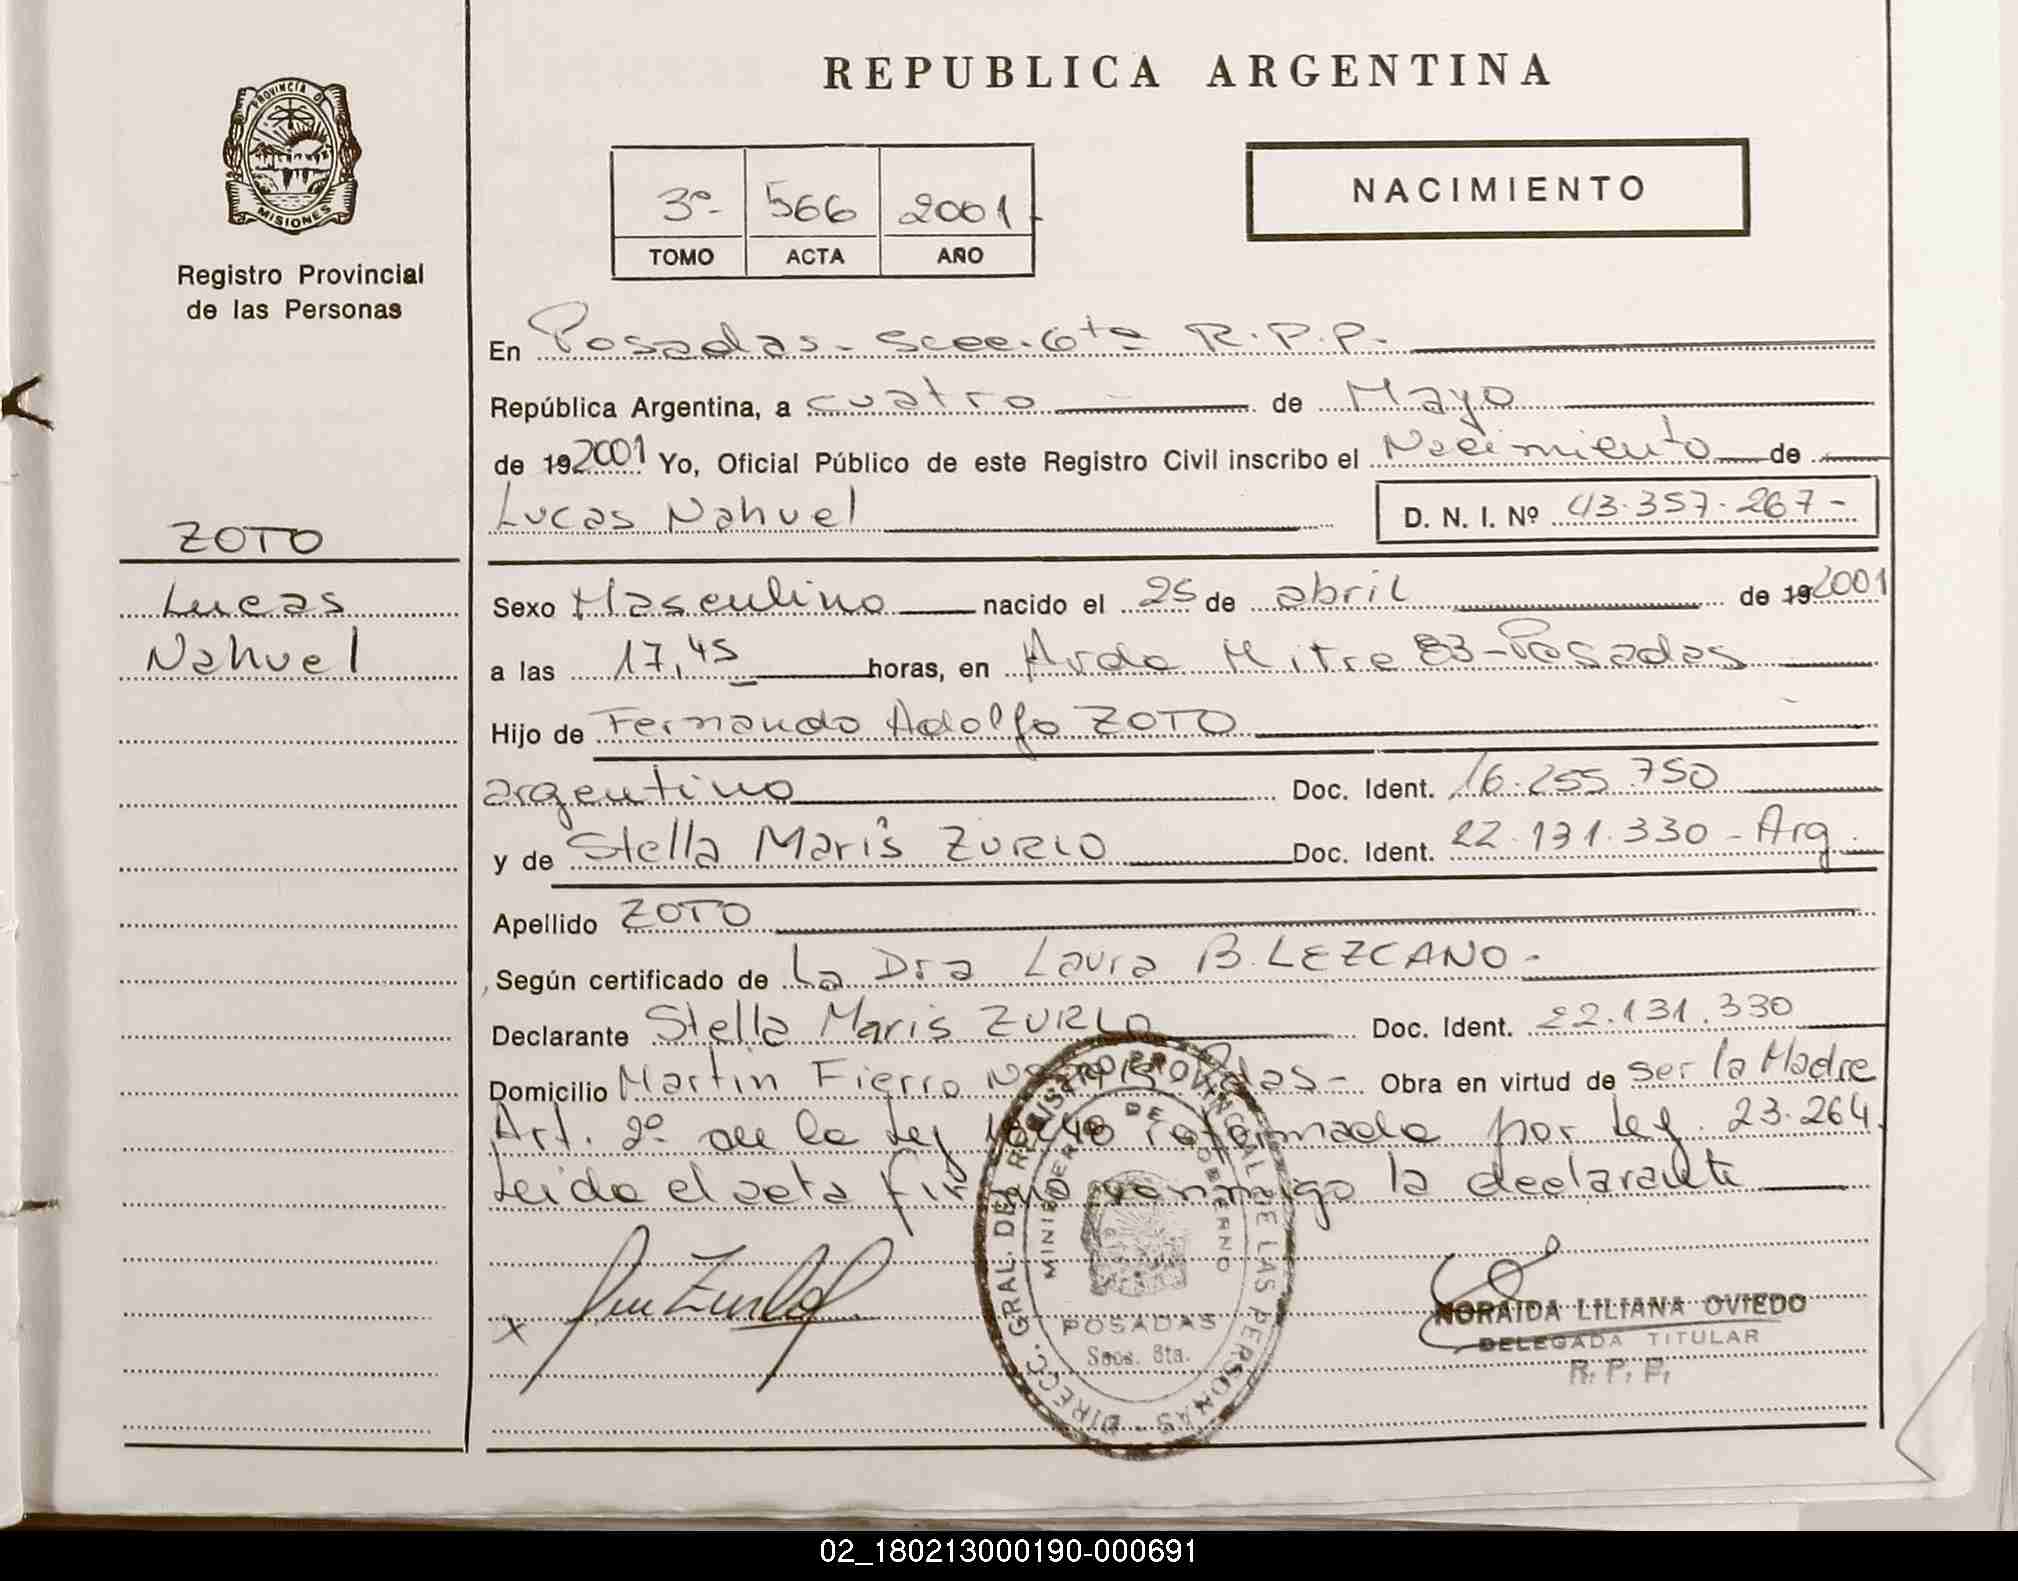 REPUBLICA ARGENTINA
PROVINCIA D
MISIONES
Registro Provincial
de las Personas
3º- 566 2001
TOMO ACTA AÑO
NACIMIENTO
En Posadas- Secc. 6ta R.P.P.-
República Argentina, a cuatro de Mayo
de 192001 Yo, Oficial Público de este Registro Civil inscribo el Nacimiento de
Lucas Nahuel D. N. I. Nº 43.357.267-
ZOTO
Lucas
Nahuel
Sexo Masculino nacido el 25 de abril de 192001
a las 17,45 horas, en Avda Mitre 83-Posadas
Hijo de Fernando Adolfo ZOTO
argentino Doc. Ident. 16.255.750
y de Stella Maris ZURLO Doc. Ident. 22.131.330-Arg.
Apellido ZOTO
Según certificado de La Dra Laura B. LEZCANO-
Declarante Stella Maris ZURLO Doc. Ident. 22.131.330
Domicilio Martin Fierro Obra en virtud de ser la Madre
Art. 2º de la Ley reformada por Ley. 23.264.
Leido el acta firma conmigo la declarante
x
DIRECC. GRAL. DEL REGISTRO PROVINCIAL DE LAS PERSONAS
MINISTERIO DE GOBIERNO
POSADAS
Secc. 6ta.
NORAIDA LILIANA OVIEDO
DELEGADA TITULAR
R. P. P.
02_180213000190-000691